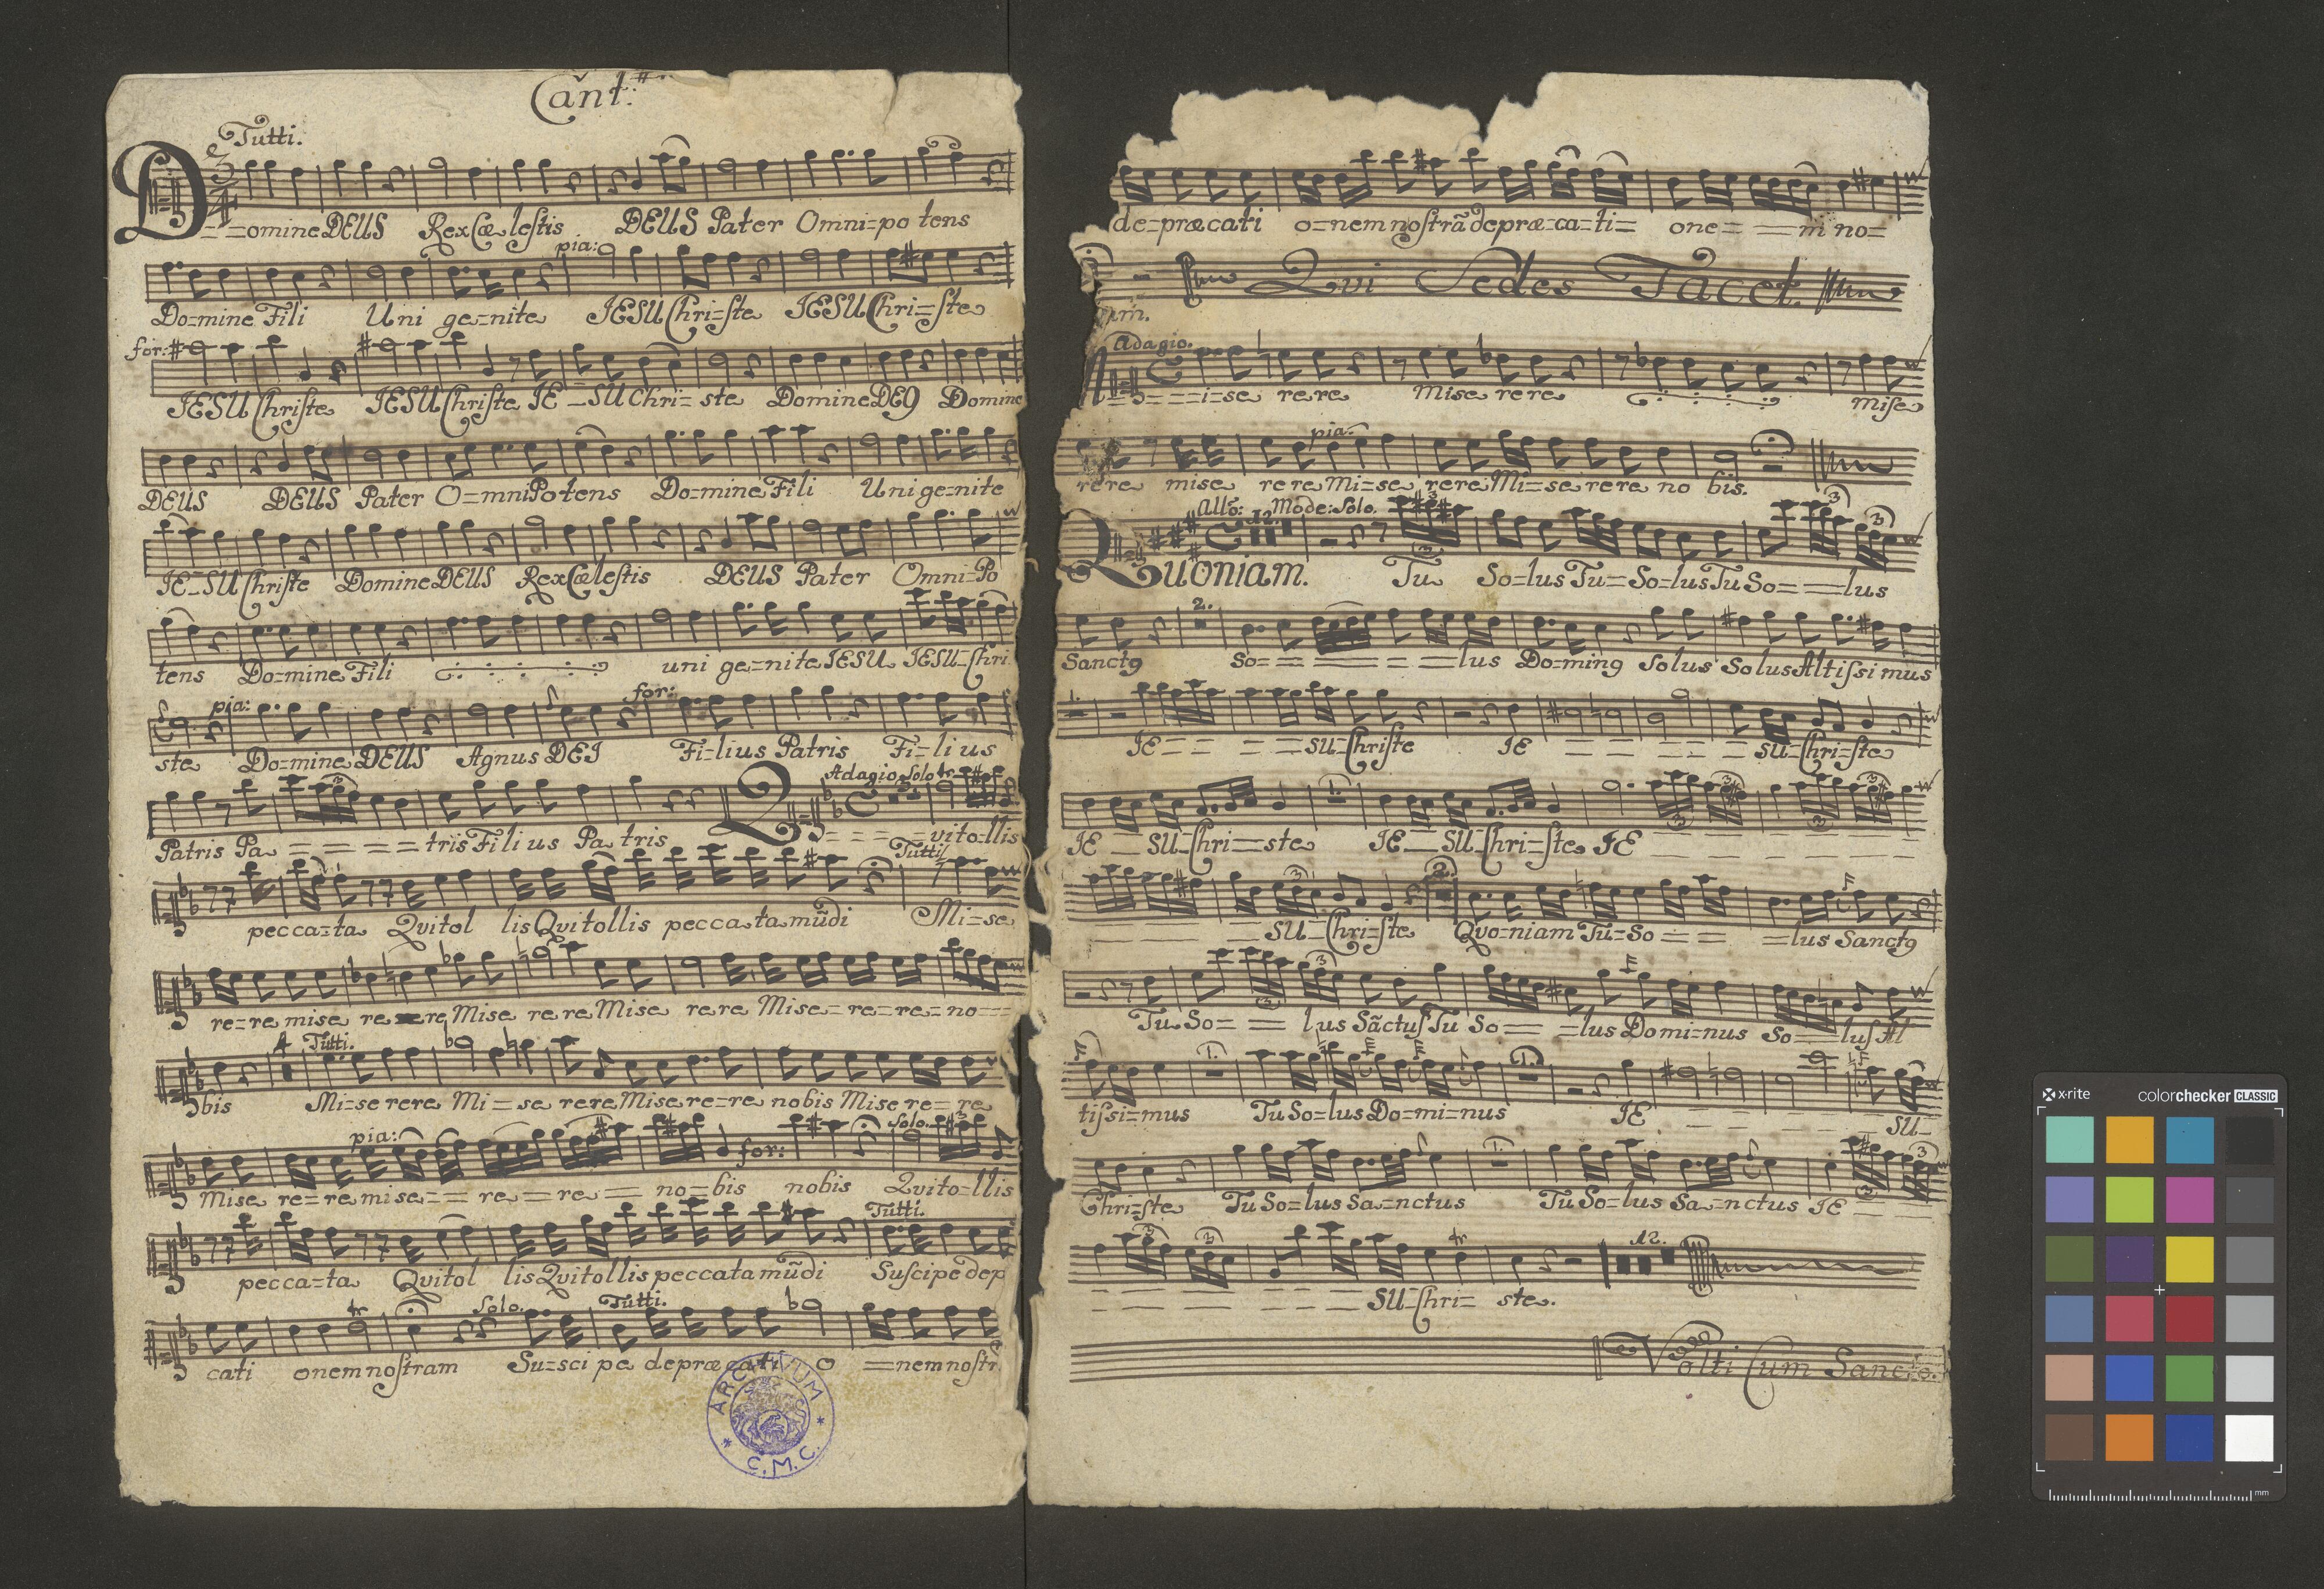 Cant:
Tutti.
Domine DEUS Rex Cœlestis DEUS Pater Omni=po tens
pia:
Do=mine Fili Uni ge=nite JESU Chri=ste JESU Chri=ste
for:
JESU Christe JESU Christe JE=SU Chri=ste Domine DE9 Domine
DEUS DEUS Pater O=mni Potens Do=mine Fili Uni ge=nite
JE=SU Christe Domine DEUS Rex Cœlestis DEUS Pater Omni=Po
tens Do=mine Fili uni ge=nite JESU JESU=Chri
pia: for:
ste Do=mine DEUS Agnus DEJ Fi=lius Patris Fi=li us
Adagio Solo tr
3
Patris Pa = = = = tris Fili us Pa tris Q = = = = vi to=llis
Tutti
pecca=ta Qvitol lis Qvitollis peccata mũdi Mi=se
re=re mise re re Mise re re Mise rere Mise=re=re=no==
4 Tutti.
bis Mi=se rere Mi=se rere Mise re=re nobis Mise re=re
pia: for: Solo. 3
Mise re=re mise== re=re= no=bis nobis Qvito=llis
Tutti.
pecca=ta Qvitol lis Qvitollis peccata mũdi Suscipe dep
tr Solo. Tutti.
cati onem nostram Su=sci pe depræcati O =nem nostr
ARCHIVUM C.M.C.
de=præcati o=nem nostrã depræ=ca=ti= one= =m no=
Qvi Sedes Tacet
Adagio.
=i=se rere Mise rere Mise
pia:
rere mise rere Mi=se rere Mi=se rere no bis.
Allo: Mode: Solo.
12. 3 3 3
Quoniam. Tu So=lus Tu=So=lus Tu So= =lus
2.
Sanct9 So= = = = =lus Do=min9 solus Solus Altissi mus
1.
JE= = = = SU=Christe JE = = = = = SU=Chri=ste
1. 3 3
JE = SU=Chri=ste JE=SU=Chri=ste JE
3 2.
SU=Chri=ste Qvo=niam Tu=So = = =lus Sanct9
3 3
Tu So= = lus Sãctus Tu So= =lus Domi=nus So= =lus Al
1. 1.
tissi=mus Tu So=lus Do=mi=nus JE SU=
1. 3
Chri=ste Tu So=lus Sa=nctus Tu So=lus Sa=nctus JE
3 3 tr 12.
SU=Chri= ste.
Volti Cum Sancto.
x-rite colorchecker CLASSIC
mm